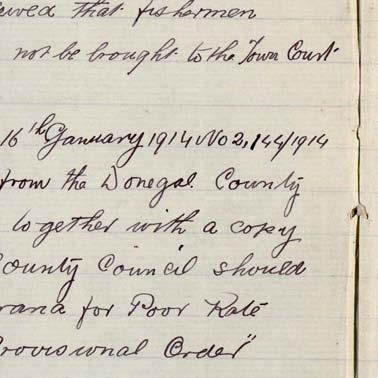 that fishermen
not be brought to the Town Court
16th January 1914 No 2,144/1914
from the Donegal County
together with a copy
County Council should
rana for Poor Rate
Provisional Order"